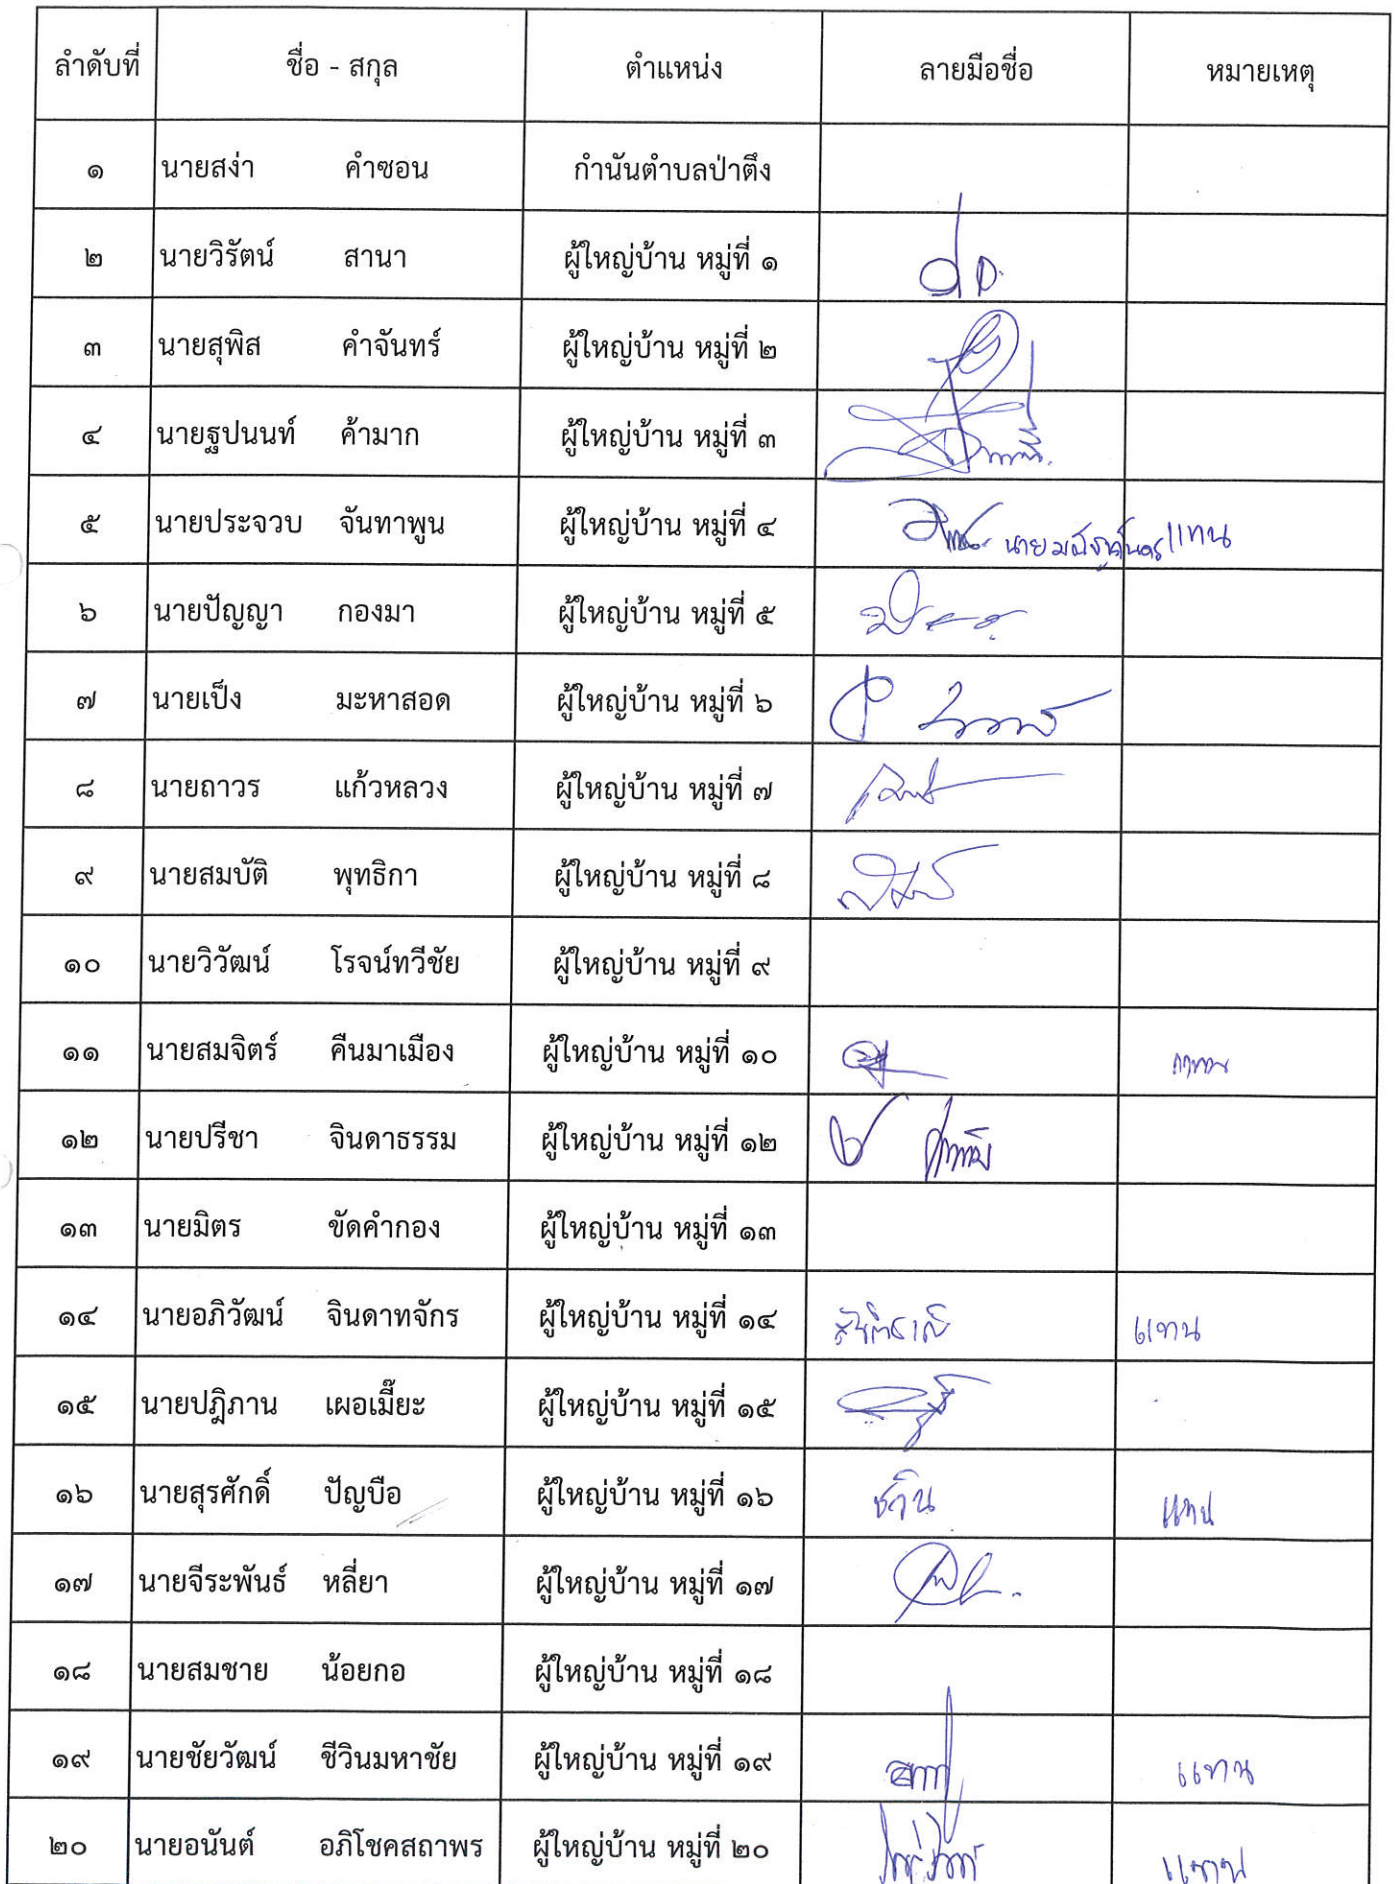 ลำดับที่ ชื่อ - สกุล ตำแหน่ง ลายมือชื่อ หมายเหตุ
๑ นายสง่า คำซอน กำนันตำบลป่าตึง
๒ นายวิรัตน์ สานา ผู้ใหญ่บ้าน หมู่ที่ ๑
๓ นายสุพิส คำจันทร์ ผู้ใหญ่บ้าน หมู่ที่ ๒
๔ นายฐปนนท์ ค้ามาก ผู้ใหญ่บ้าน หมู่ที่ ๓
๕ นายประจวบ จันทาพูน ผู้ใหญ่บ้าน หมู่ที่ ๔ นาย แทน
๖ นายปัญญา กองมา ผู้ใหญ่บ้าน หมู่ที่ ๕
๗ นายเป็ง มะหาสอด ผู้ใหญ่บ้าน หมู่ที่ ๖
๘ นายถาวร แก้วหลวง ผู้ใหญ่บ้าน หมู่ที่ ๗
๙ นายสมบัติ พุทธิกา ผู้ใหญ่บ้าน หมู่ที่ ๘
๑๐ นายวิวัฒน์ โรจน์ทวีชัย ผู้ใหญ่บ้าน หมู่ที่ ๙
๑๑ นายสมจิตร์ คืนมาเมือง ผู้ใหญ่บ้าน หมู่ที่ ๑๐
๑๒ นายปรีชา จินดาธรรม ผู้ใหญ่บ้าน หมู่ที่ ๑๒
๑๓ นายมิตร ขัดคำกอง ผู้ใหญ่บ้าน หมู่ที่ ๑๓
๑๔ นายอภิวัฒน์ จินดาทจักร ผู้ใหญ่บ้าน หมู่ที่ ๑๔ แทน
๑๕ นายปฎิภาน เผอเมี๊ยะ ผู้ใหญ่บ้าน หมู่ที่ ๑๕
๑๖ นายสุรศักดิ์ ปัญบือ ผู้ใหญ่บ้าน หมู่ที่ ๑๖ แทน
๑๗ นายจีระพันธ์ หลี่ยา ผู้ใหญ่บ้าน หมู่ที่ ๑๗
๑๘ นายสมชาย น้อยกอ ผู้ใหญ่บ้าน หมู่ที่ ๑๘
๑๙ นายชัยวัฒน์ ชีวินมหาชัย ผู้ใหญ่บ้าน หมู่ที่ ๑๙ แทน
๒๐ นายอนันต์ อภิโชคสถาพร ผู้ใหญ่บ้าน หมู่ที่ ๒๐ แทน